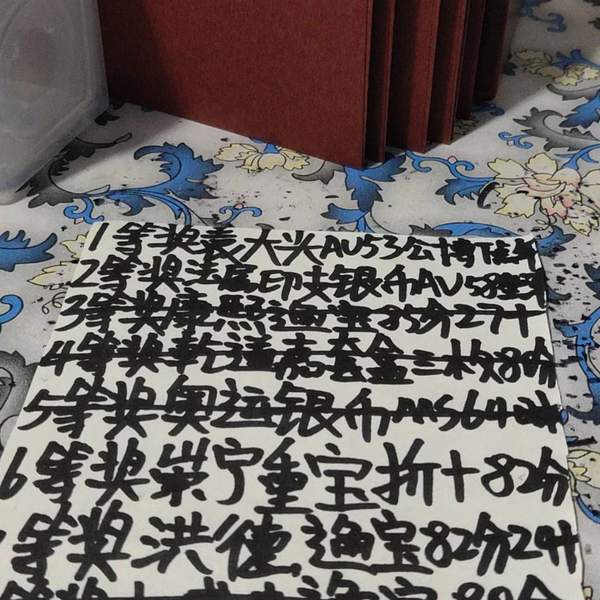 1等奖袁大头AU53公博
2等奖法属印支银币AU58
3等奖康熙通宝85分27十
4等奖乾道嘉套盒三枚80分
5等奖奥运银币MS64
6等奖崇宁重宝折十82分
等奖洪德通宝82分24